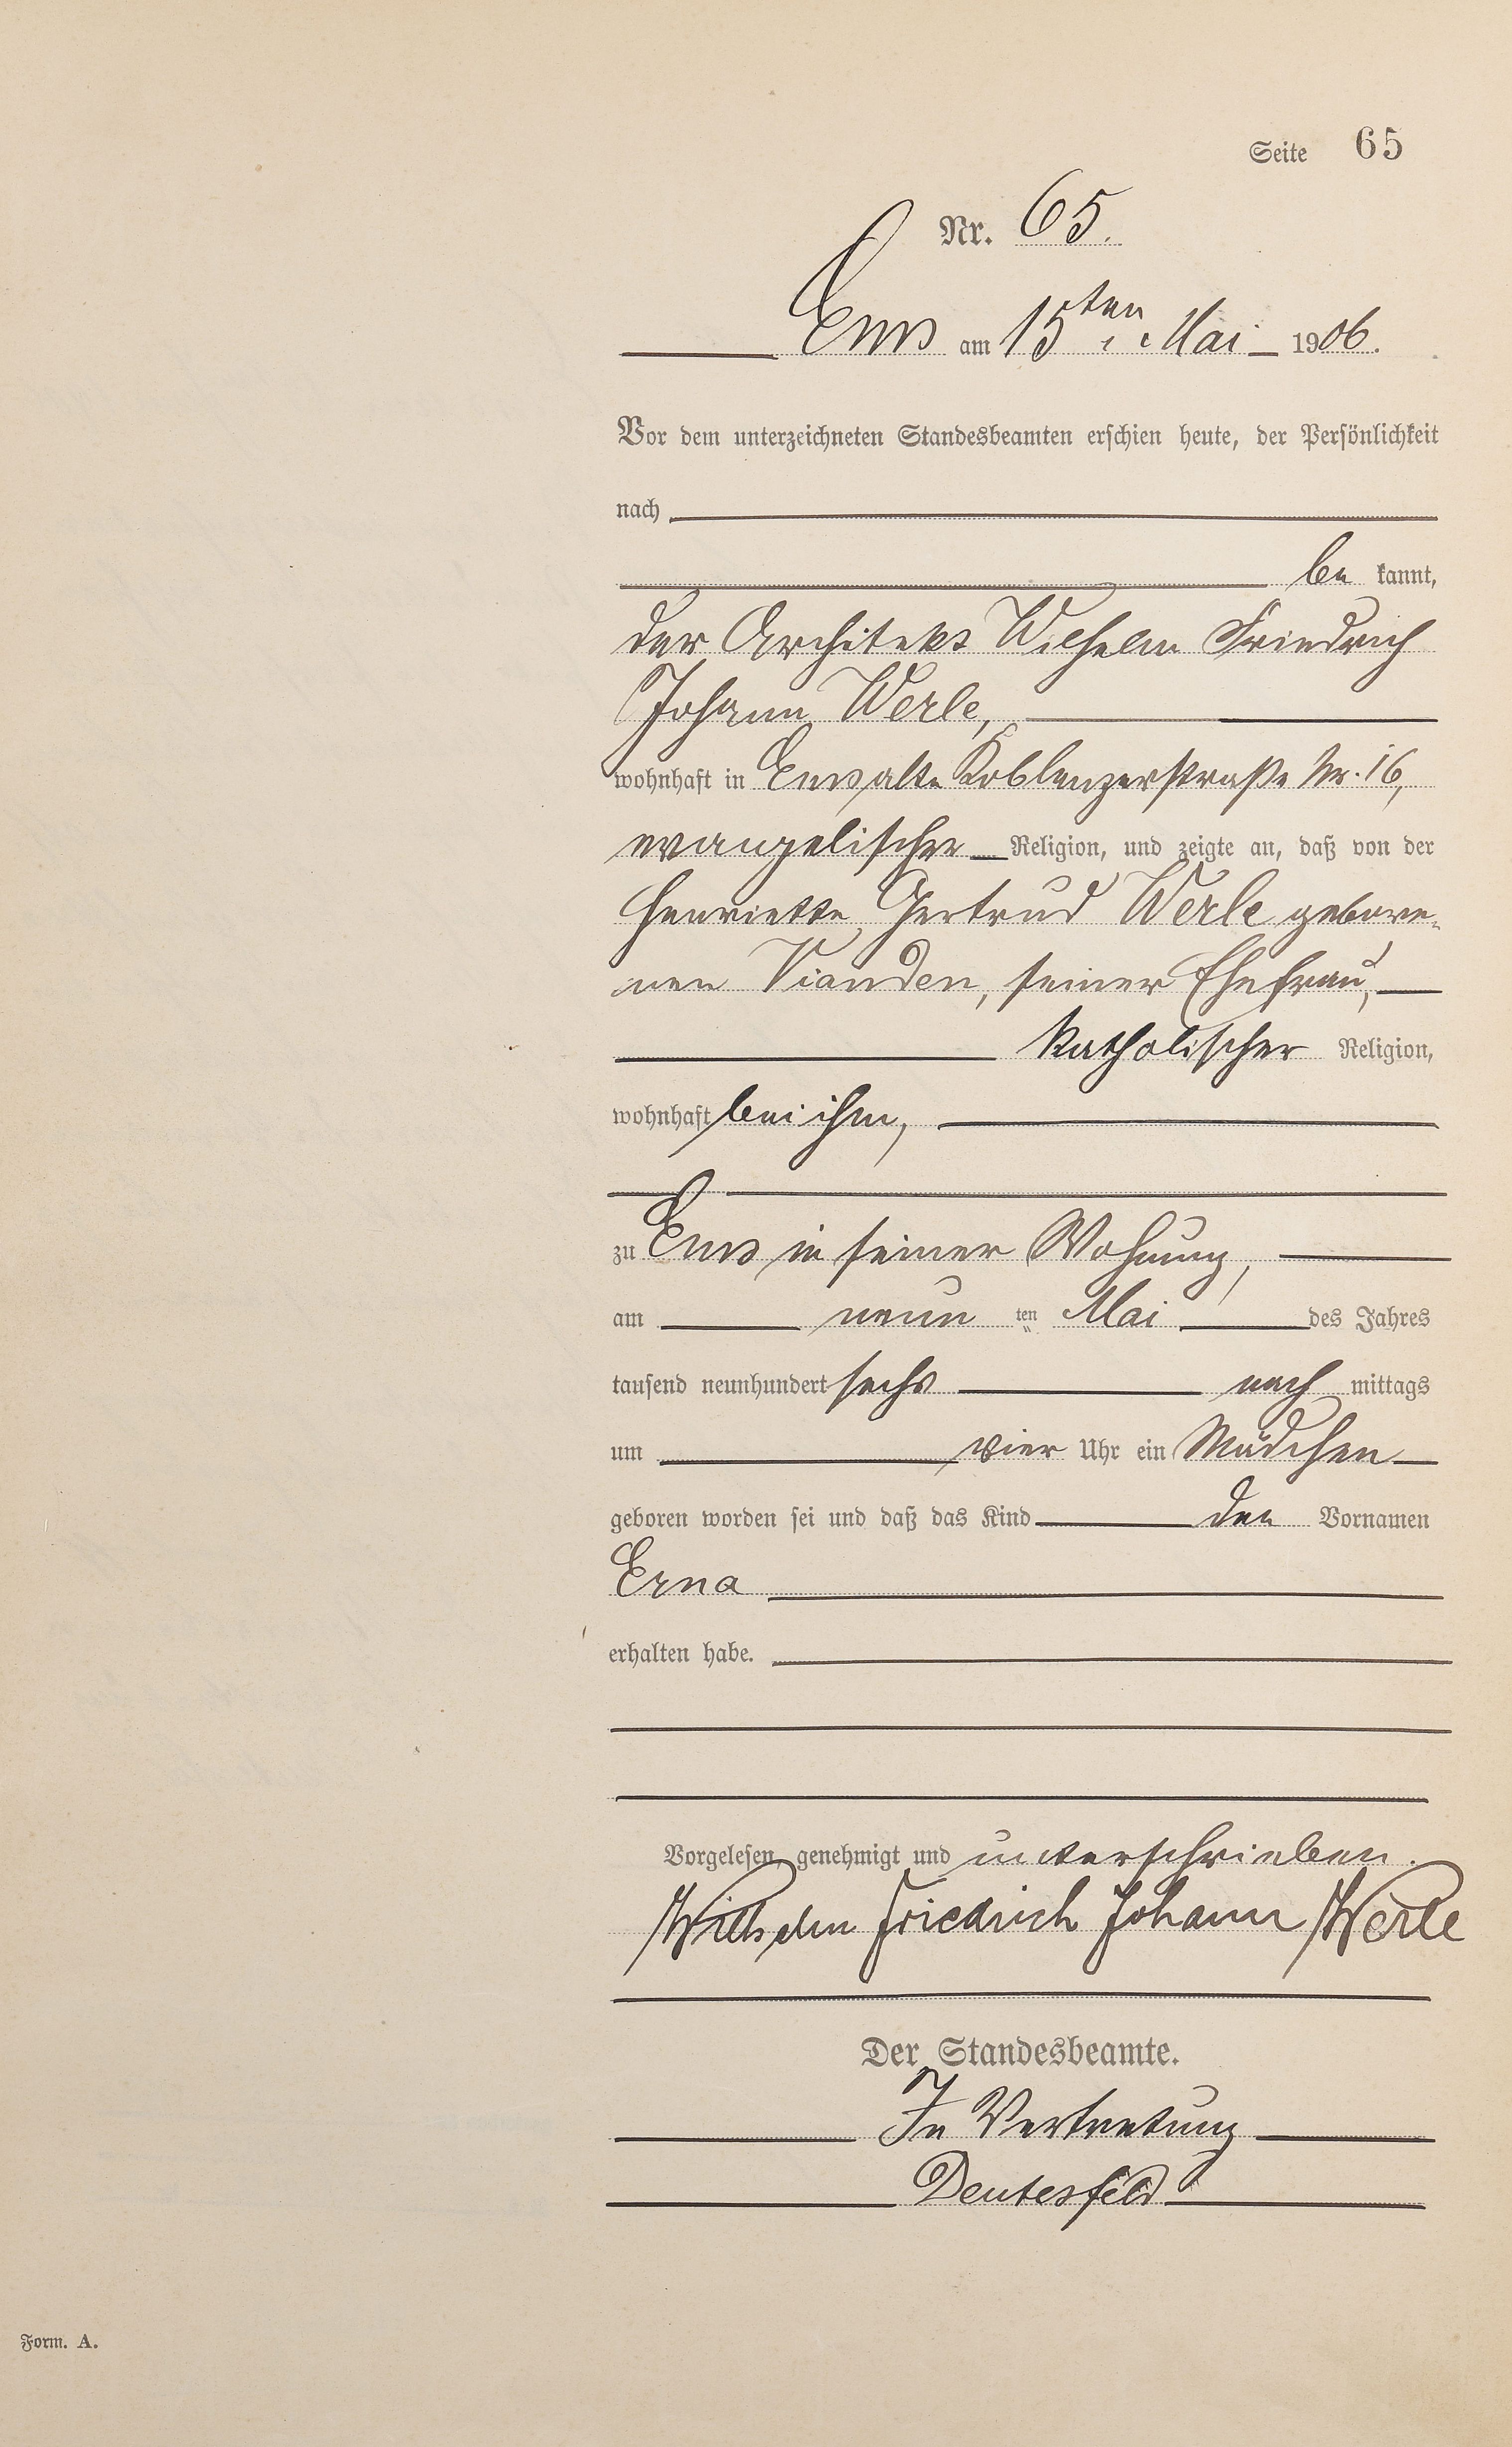 Seite 65
Nr. 65.
Ems am 15ten Mai 1906.
Vor dem unterzeichneten Standesbeamten erschien heute, der Persönlichkeit
nach
be kannt,
der Architekt Wilhelm Friedrich
Johann Werle,
wohnhaft in Ems alte Koblenzerstraße Nr. 16,
evangelischer Religion, und zeigte an, daß von der
Henriette Gertrud Werle gebore-
nen Vianden, seiner Ehefrau,
katholischer Religion,
wohnhaft bei ihm,
zu Ems in seiner Wohnung,
am neun ten Mai des Jahres
tausend neunhundert sechs nach mittags
um vier Uhr ein Mädchen
geboren worden sei und daß das Kind den Vornamen
Erna
erhalten habe.
Vorgelesen, genehmigt und unterschrieben.
Wilhelm Friedrich Johann Werle
Der Standesbeamte.
In Vertretung
Deutesfeld
Form. A.